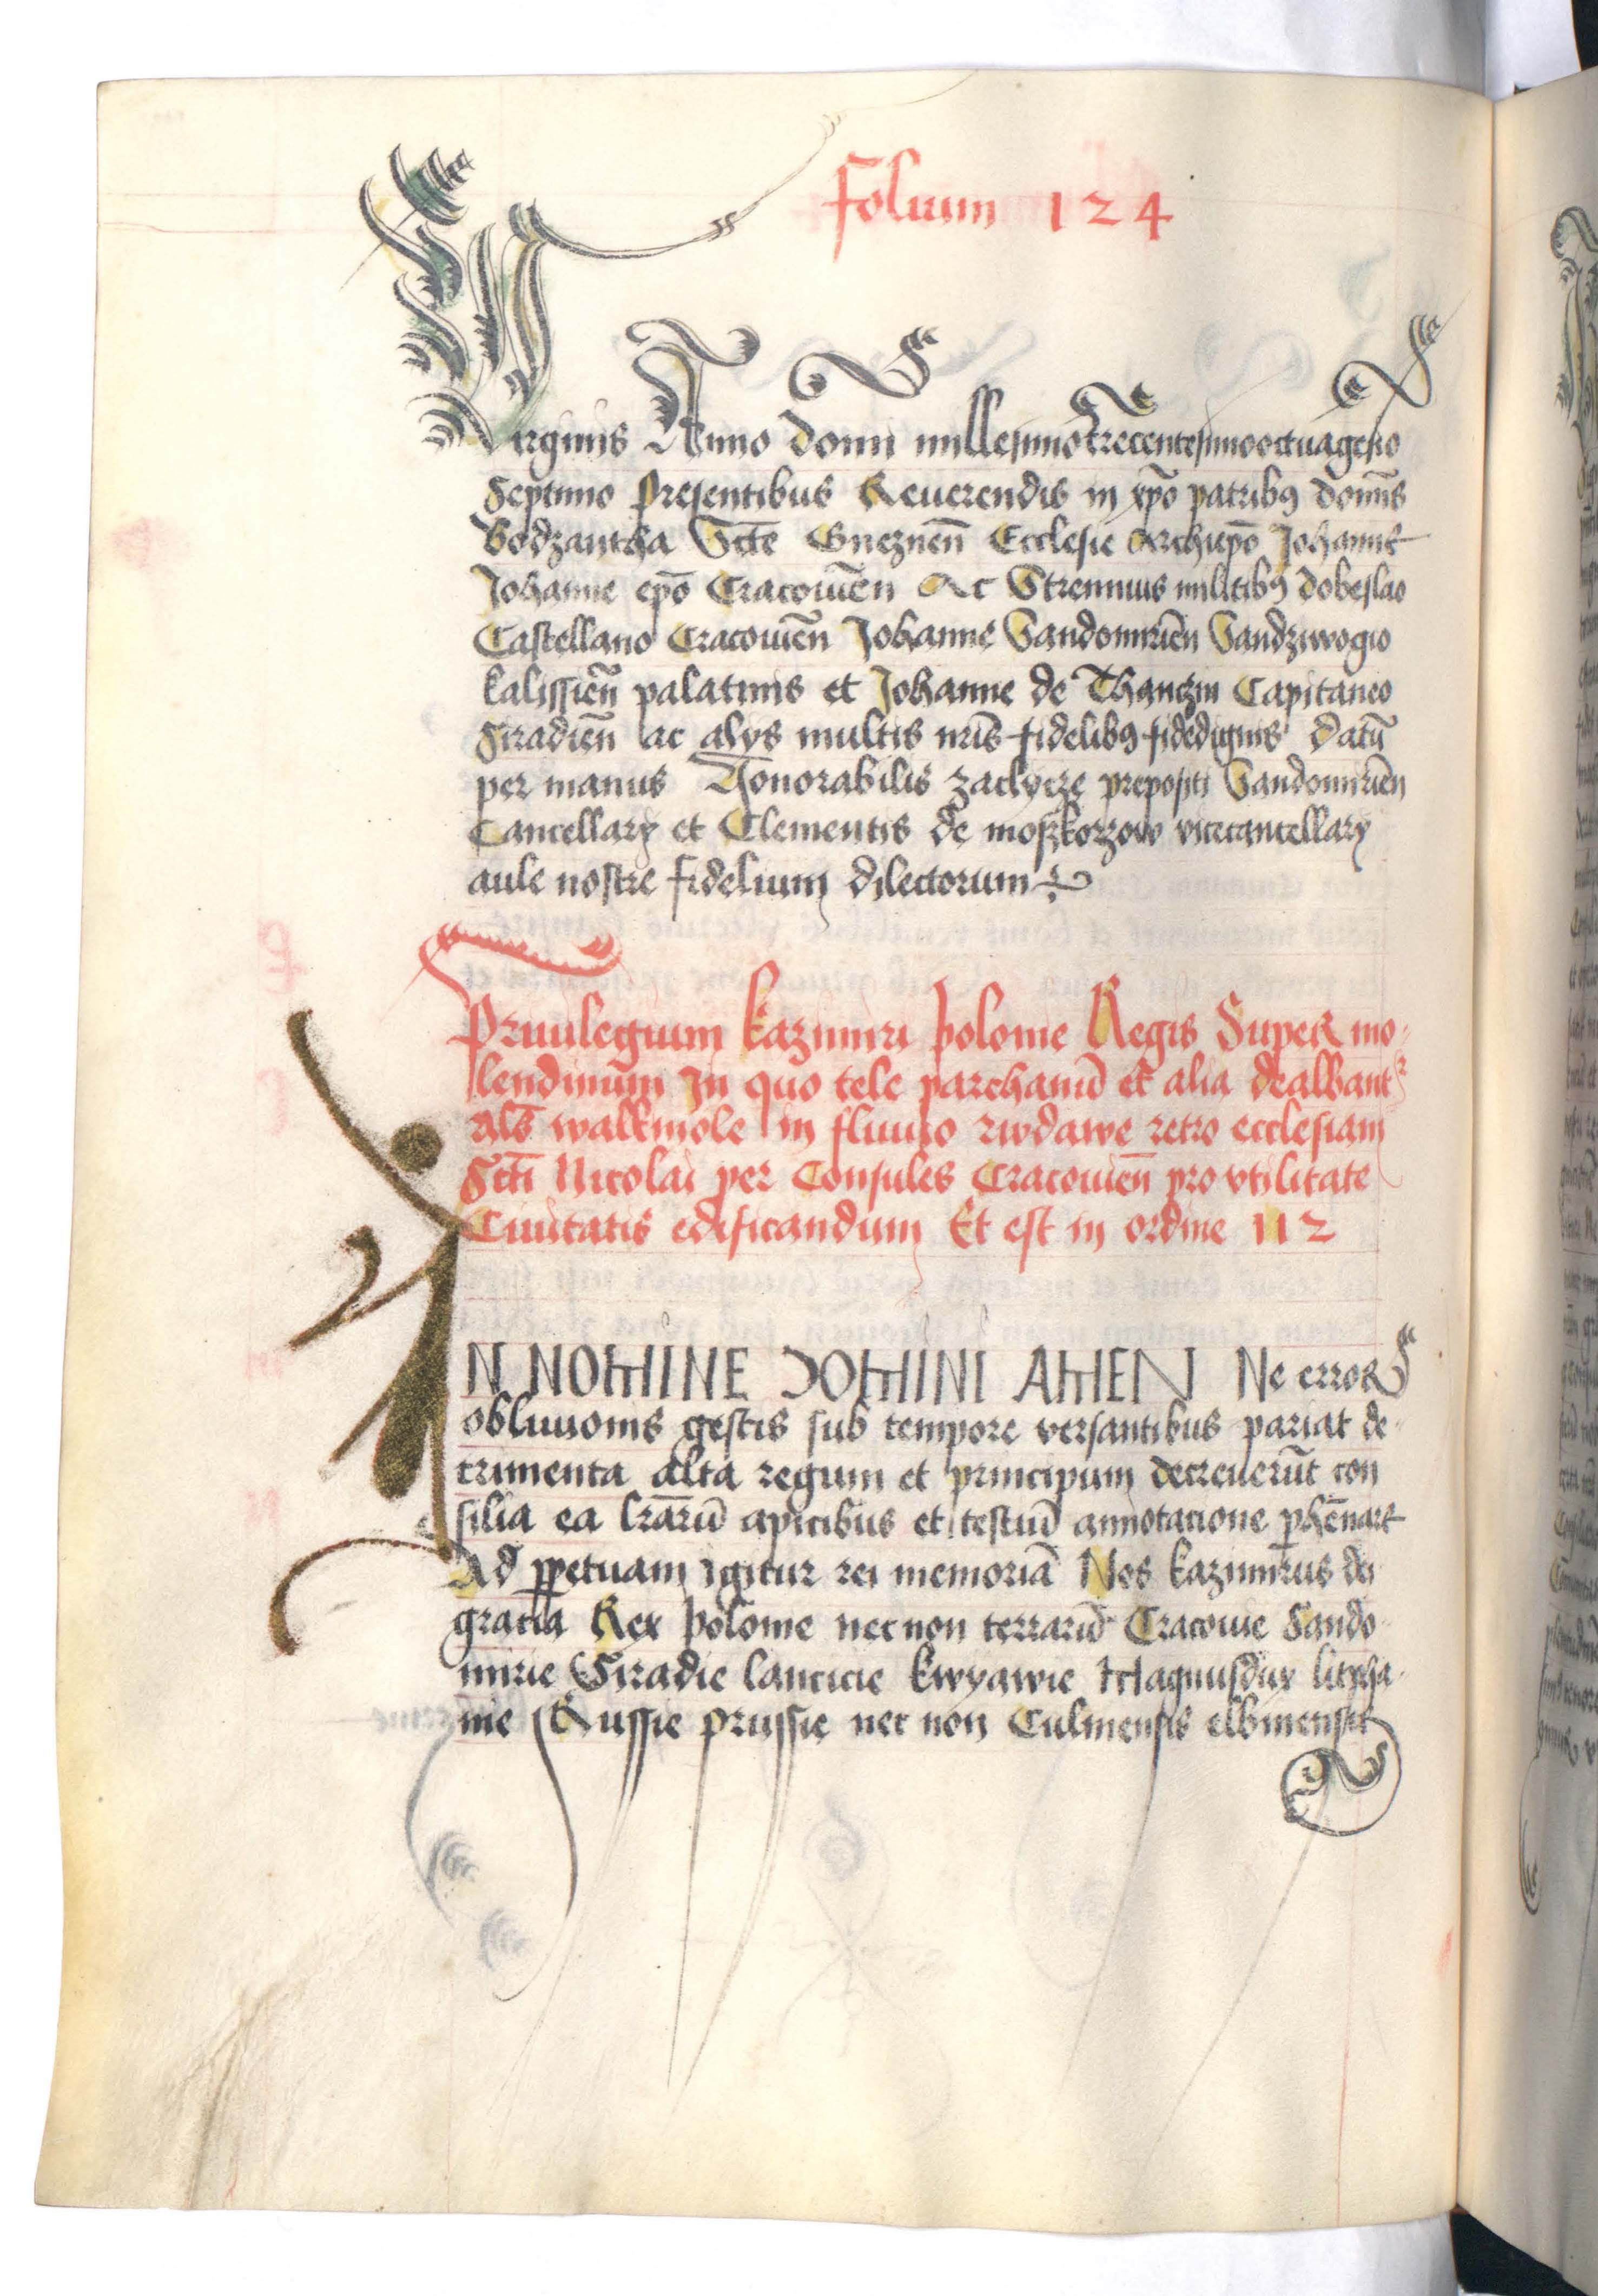 Folium 124
Virginis Anno domi millesimotrecentesimooctuagesio
Septimo Presentibus Reuerendis in xpo patribꝯ domis
Bodzantha Scte Gneznen̄ Ecclesie Archiepō Johanne
Johanne epō Cracouien̄ Ac Strennuis militibꝯ dobeslao
Castellano Cracouien̄ Johanne Sandomirien̄ Sandziwogio
kalissien̄ palatinis et Johanne de Thanczin Capitaneo
Siradien̄ ac alys multis nr̄is fidelibꝯ fidedignis Datū
per manus Honorabilis zaclycze prepositi Sandomirien̄
Cancellary et Clementis de moskorzow vicecancellary
aule nostre fidelium dilectorum
Priuilegium kazimiri polonie Regis Super mo-
lendinum In quo tele parchanū et alia dealbant
als walkmole in fluuio rudawe retro ecclesiam
Scti Nicolai per Consules Cracouien̄ pro vtilitate
Ciuitatis edificandum Et est in ordine 112
IN NOMINE DOMINI AMEN Ne error
obliuionis gestis sub tempore versantibus pariat de-
trimenta alta regum et principum decreuerūt con
silia ea lrarū apicibus et testiū annotacione phennare
Ad ꝑpetuam igitur rei memoriā Nos kazimirus dei
gratia Rex polonie nec non terrarū Cracouie Sando-
mirie Siradie lancicie kwyawie Magnusdux litwha-
nie Russie prussie nec non Culmensis elbinensis